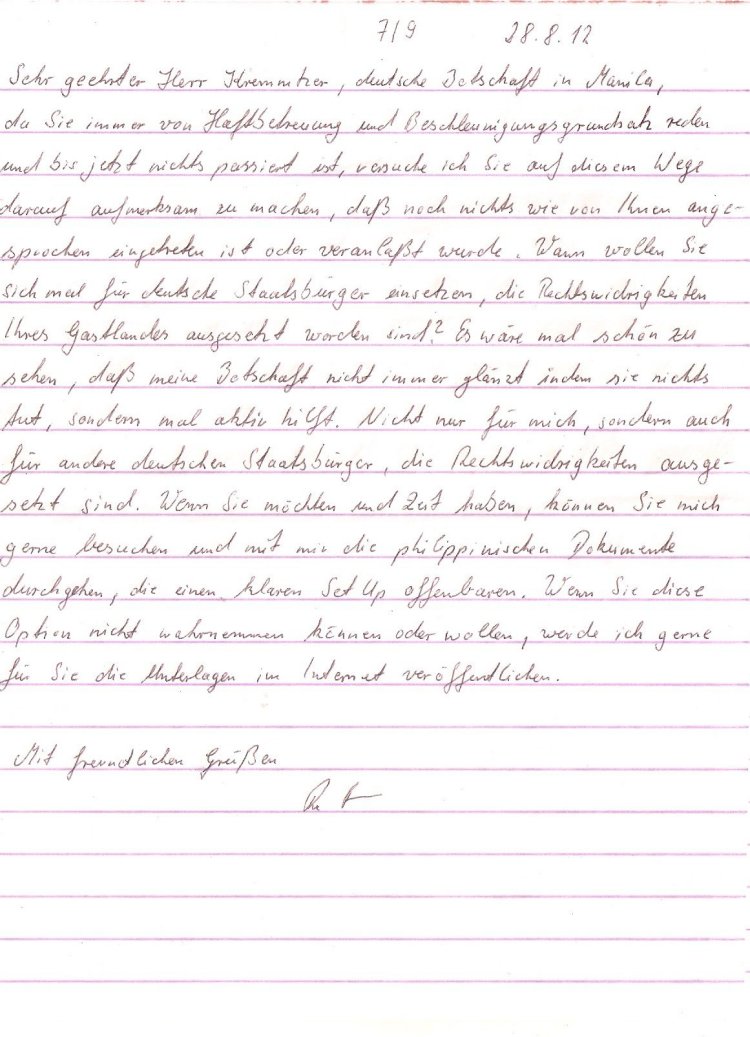 7/9 28.8.12
Sehr geehrter Herr Kremnitzer, deutsche Botschaft in Manila,
da Sie immer von Haftbetreuung und Beschleunigungsgrundsatz reden
und bis jetzt nichts passiert ist, versuche ich Sie auf diesem Wege
darauf aufmerksam zu machen, daß noch nichts wie von Ihnen ange-
sprochen eingetreten ist oder veranlaßt wurde. Wann wollen Sie
sich mal für deutsche Staatsbürger einsetzen, die Rechtswidrigkeiten
Ihres Gastlandes ausgesetzt worden sind? Es wäre mal schön zu
sehen, daß meine Botschaft nicht immer glänzt indem sie nichts
tut, sondern mal aktiv hilft. Nicht nur für mich, sondern auch
für andere deutschen Staatsbürger, die Rechtswidrigkeiten ausge-
setzt sind. Wenn Sie möchten und Zeit haben, können Sie mich
gerne besuchen und mit mir die philippinischen Dokumente
durchgehen, die einen klaren Set Up offenbaren. Wenn Sie diese
Option nicht wahrnemmen können oder wollen, werde ich gerne
für Sie die Unterlagen im Internet veröffentlichen.
Mit freundlichen Grüßen